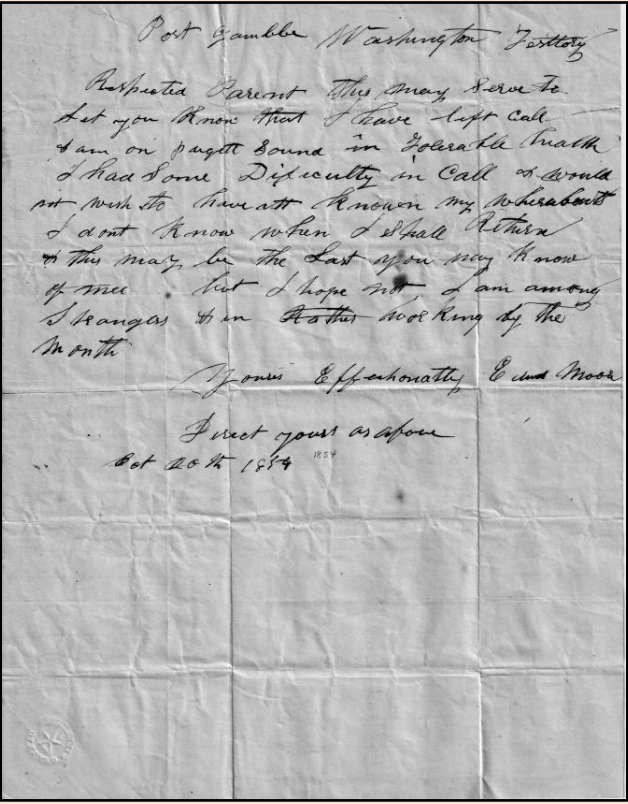 Port Gamble Washington Territory
Respected Parent this may serve to
Let you Know that I have left Call
& am on pugett Sound in Tolerable health
I had Some Dificulty in Call & would
not wish to have all known my wherabouts
I dont Know when I shall Return
& this may be the Last you may Know
of mee but I hope not I am among
Strangers & in working by the
Month
Yours Effectionatly Moor
Direct yours as above
Oct 20th 1854 1854